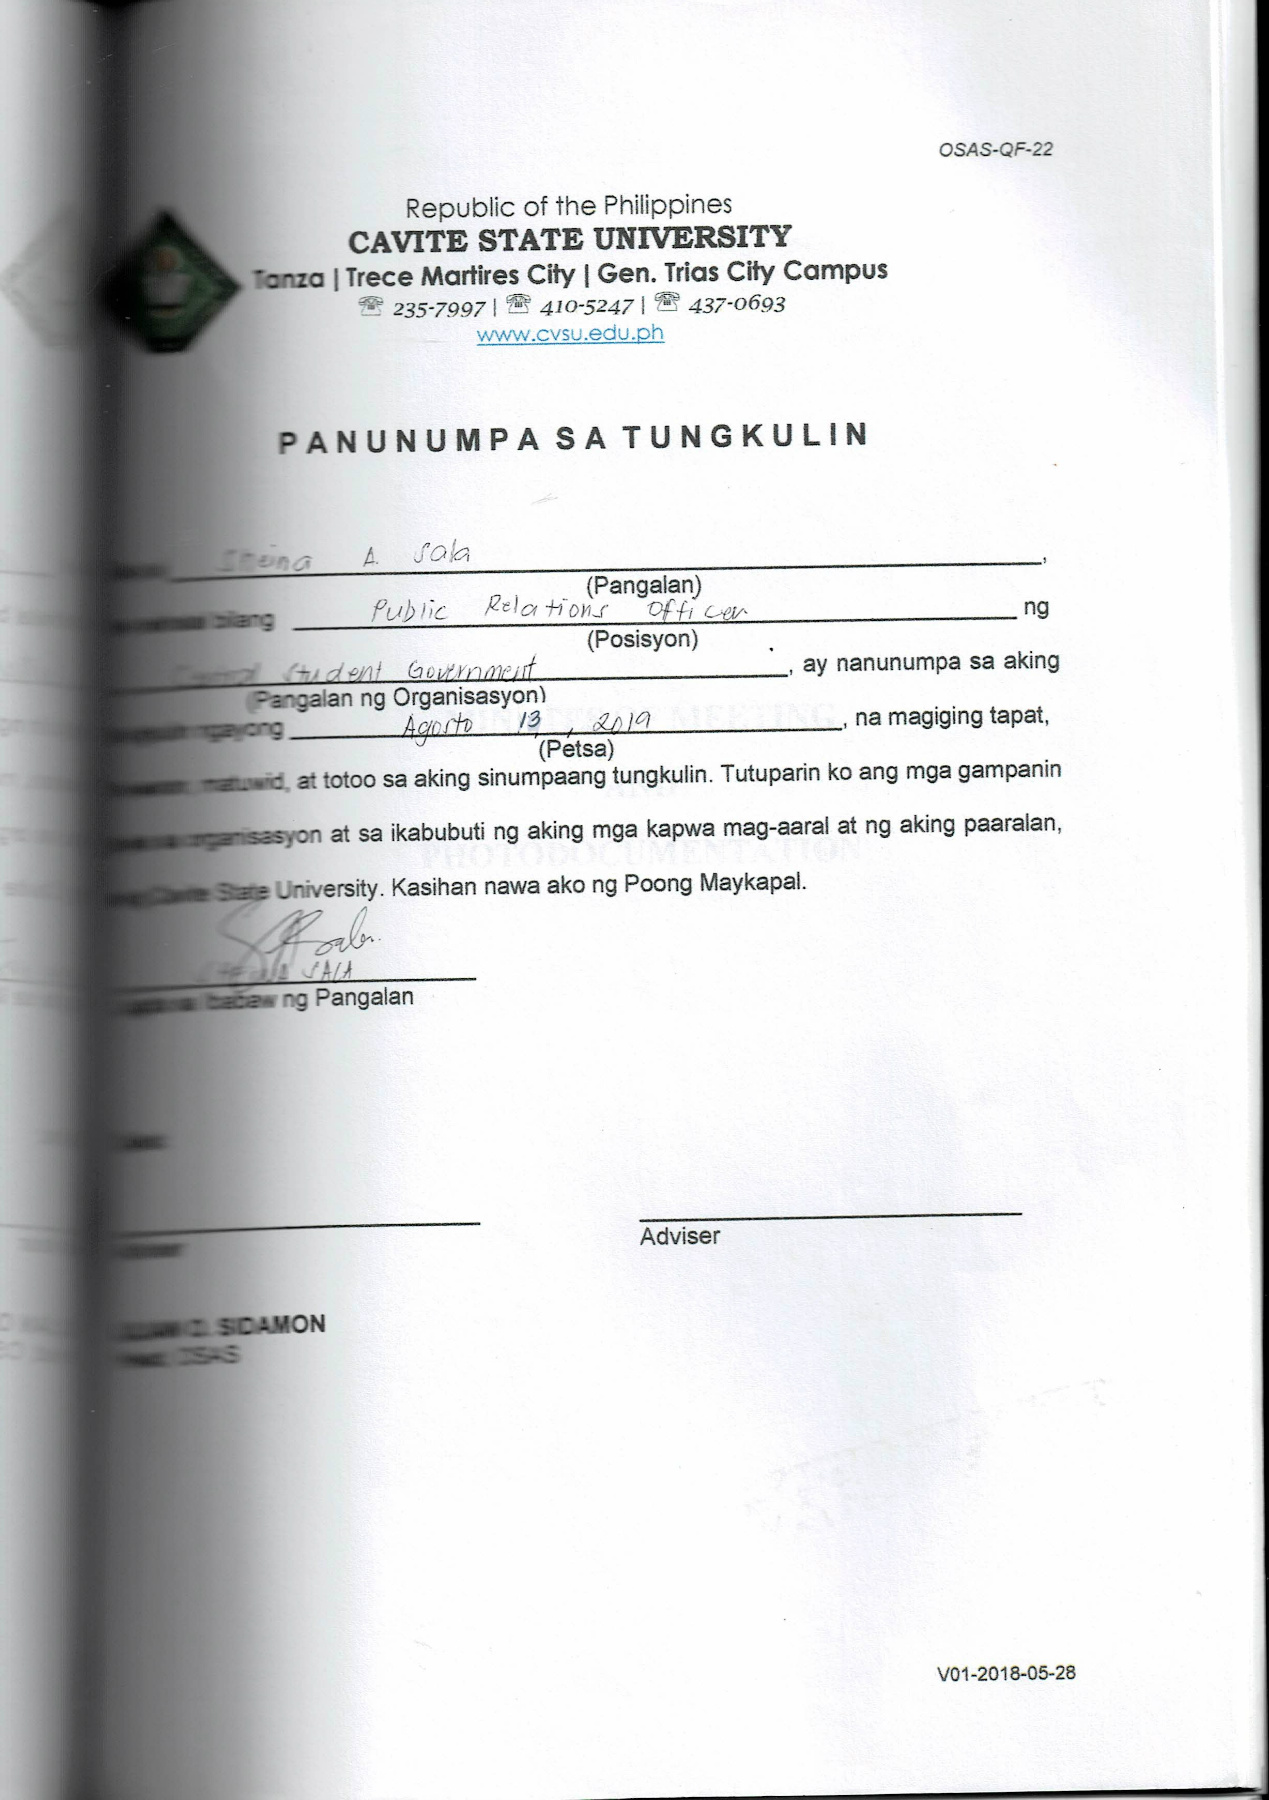 OSAS-QF-22
Republic of the Philippines
CAVITE STATE UNIVERSITY
Tanza | Trece Martires City | Gen. Trias City Campus
☏ 235-7997 | ☏ 410-5247 | ☏ 437-0693
www.cvsu.edu.ph
PANUNUMPA SA TUNGKULIN
A. Sala ,
(Pangalan)
bilang Public Relations Officer ng
(Posisyon)
Student Government , ay nanunumpa sa aking
(Pangalan ng Organisasyon)
ngayong Agosto 13 , 2019 , na magiging tapat,
(Petsa)
matuwid, at totoo sa aking sinumpaang tungkulin. Tutuparin ko ang mga gampanin
organisasyon at sa ikabubuti ng aking mga kapwa mag-aaral at ng aking paaralan,
Cavite State University. Kasihan nawa ako ng Poong Maykapal.
SALA
Ibabaw ng Pangalan
Adviser
SIDAMON
OSAS
V01-2018-05-28